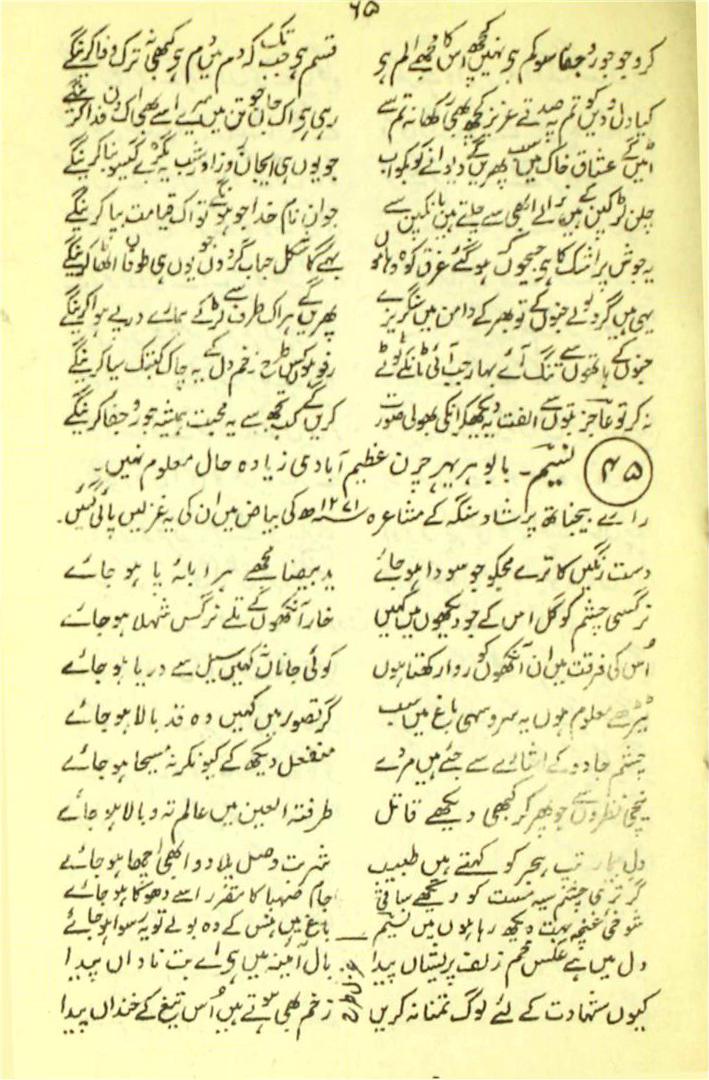 ۶۵
کرو جو جور و جفا سو کم ہو نہیں کچھ اس کا مجھے الم ہو قسم ہو جب تک کہ دم میں دم ہو کبھی نہ ترک وفا کرینگے
کیا دل و دیں کو تم پہ صدقے عزیز کچھ بھی رکھا نہ تم سے رہی ہو اک جان جو تن میں میرے اسے بھی اک دن فدا کرینگے
اٹیں گے عشاق خاک میں سب پھریں گے دیوانے کو بکو اب جو یوں ہی ایجان روز اور شب یہ بگڑے گیسو بنا کرینگے
چلن لڑکپن کے ہیں نرالے ابھی سے چلتے ہیں بانکپن سے جوان نام خدا جو ہونگے تو اک قیامت بپا کرینگے
یہ جوش پر اشک کا ہو جیحوں کہ ہو گئے غرق کوہ و ہاموں بہے گا شکل حباب گردوں جو یوں ہی طوفاں اٹھا کرینگے
یہی ہیں گر ولولے جنوں کے تو بھر کے دامن میں سنگریزے پھریں گے ہر اک طرف سے لڑکے ہمارے درپے ہوا کرینگے
جنوں کے ہاتھوں سے تنگ آئے بہار جب آئی ٹانکے ٹوٹے رفو ہو کس طرح زخم دل کے یہ چاک کبتک سیا کرینگے
نہ کر تو عاجز بتوں سے الفت یہ دیکھکر انکی بھولی صورت کریں گے کب تجھ سے یہ محبت ہمیشہ جور و جفا کرینگے
۴۵ نسیم۔ بابو ہر یہر چرن عظیم آبادی زیادہ حال معلوم نہیں۔
رائے بیجناتھ پرشاد سنگہ کے مشاعرہ ۱۲۷۱ھ کی بیاض میں ان کی یہ غزلیں پائی گئیں۔
دست رنگیں کا ترے مجکو جو سودا ہو جائے ید بیضا مجھے ہر آبلۂ پا ہو جائے
نرگسی چشم کو گل اس کے جو دیکھوں میں کہیں خار آنکھوں کے تلے نرگس شہلا ہو جائے
اُس کی فرقت میں ان آنکھوں کو روا رکھتا ہوں کوئی جاناں کہیں سیل سے دریا ہو جائے
ٹیڑھے معلوم ہوں یہ سرو سہی باغ میں سب گر تصور میں کہیں وہ قد بالا ہو جائے
چشم جادو کے اشارے سے جئے ہیں مردے منفعل دیکھ کے کیونکر نہ مسیحا ہو جائے
نیچی نظروں سے جو پھر کر کبھی دیکھے قاتل طرفتہ العین میں عالم تہ و بالا ہو جائے
دل بیمار تپ ہجر کو کہتے ہیں طبیب شربت وصل پلا دو ابھی اچھا ہو جائے
گر تری چشم سیہ مست کو دیکھے ساقی جام صہبا کا مقرر اسے دھوکا ہو جائے
شوخئ غنچہ بہت دیکھ رہا ہوں میں نسیم باغ میں ہنس کے وہ بولے تو یہ رسوا ہو جائے
دل میں ہے عکس خم زلف پریشاں پیدا غزل طرح بال آئینہ میں ہو اے بت ناداں پیدا
کیوں شہادت کے لئے لوگ تمنا نہ کریں زخم بھی ہوتے ہیں اُس تیغ کے خنداں پیدا